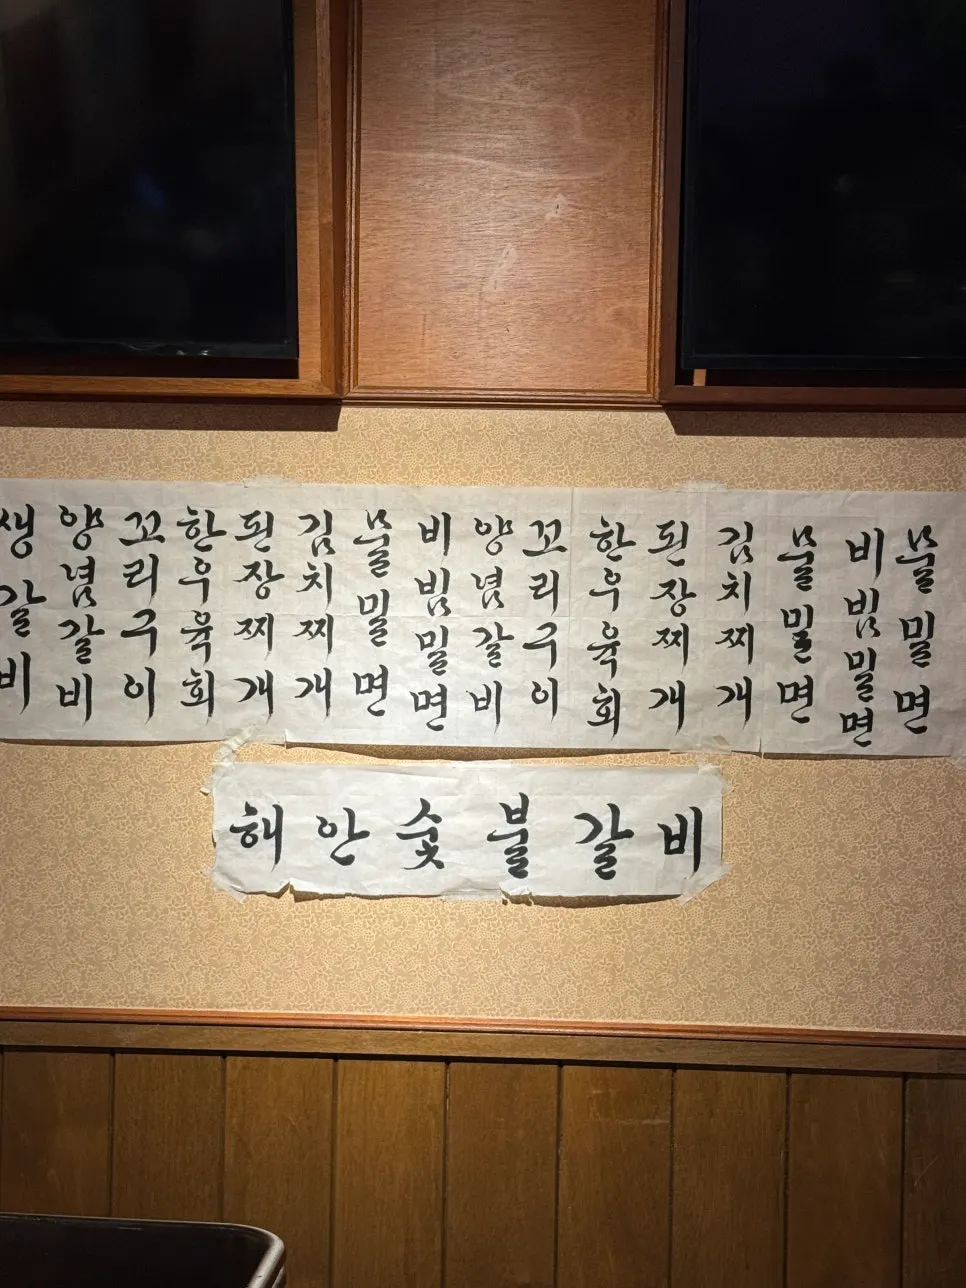 생갈비
양념갈비
꼬리구이
한우육회
된장찌개
김치찌개
물밀면
비빔밀면
양념갈비
꼬리구이
한우육회
된장찌개
김치찌개
물밀면
비빔밀면
물밀면
해안숯불갈비